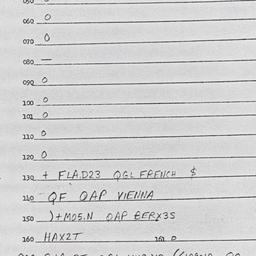 050
060 0
070 0
080 —
090 0
100 0
101 0
110 0
120 0
130 + FLA.D23 QGL FRENCH $
140 QF QAP VIENNA
150 )+MO5.N QAP BERX3S
160 HAX2T 161 0